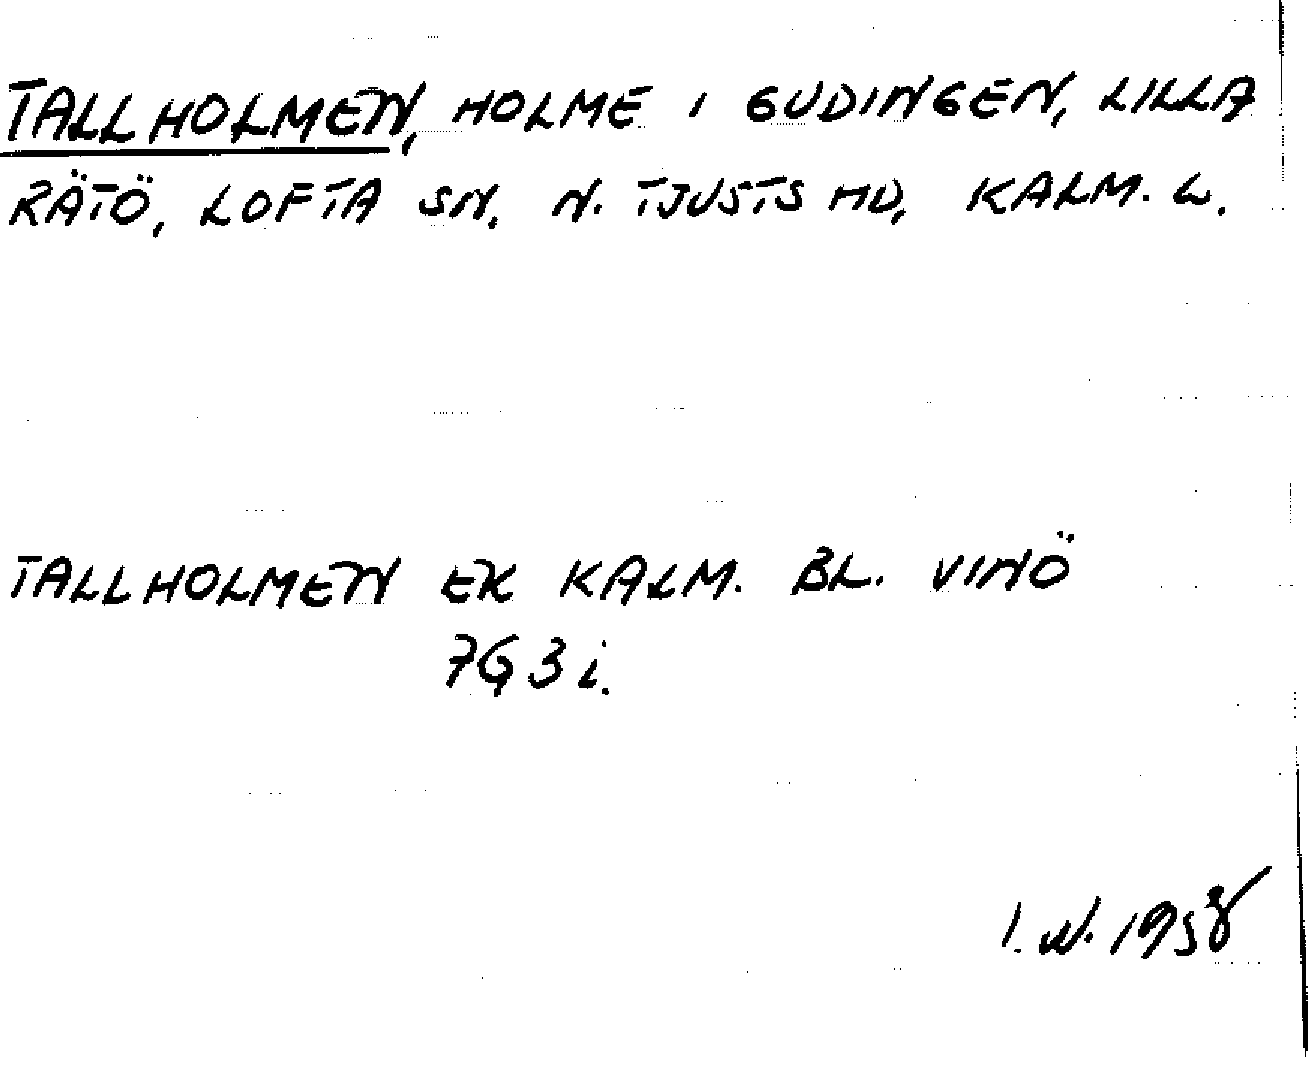 TALLHOLMEN, HOLME I GUDINGEN, LILLA
RÄTÖ, LOFTA SN. N. TJUSTS HD, KALM. L.
TALLHOLMEN EK KALM. BL. VINÖ
7G 3 i.
I. N. 1958